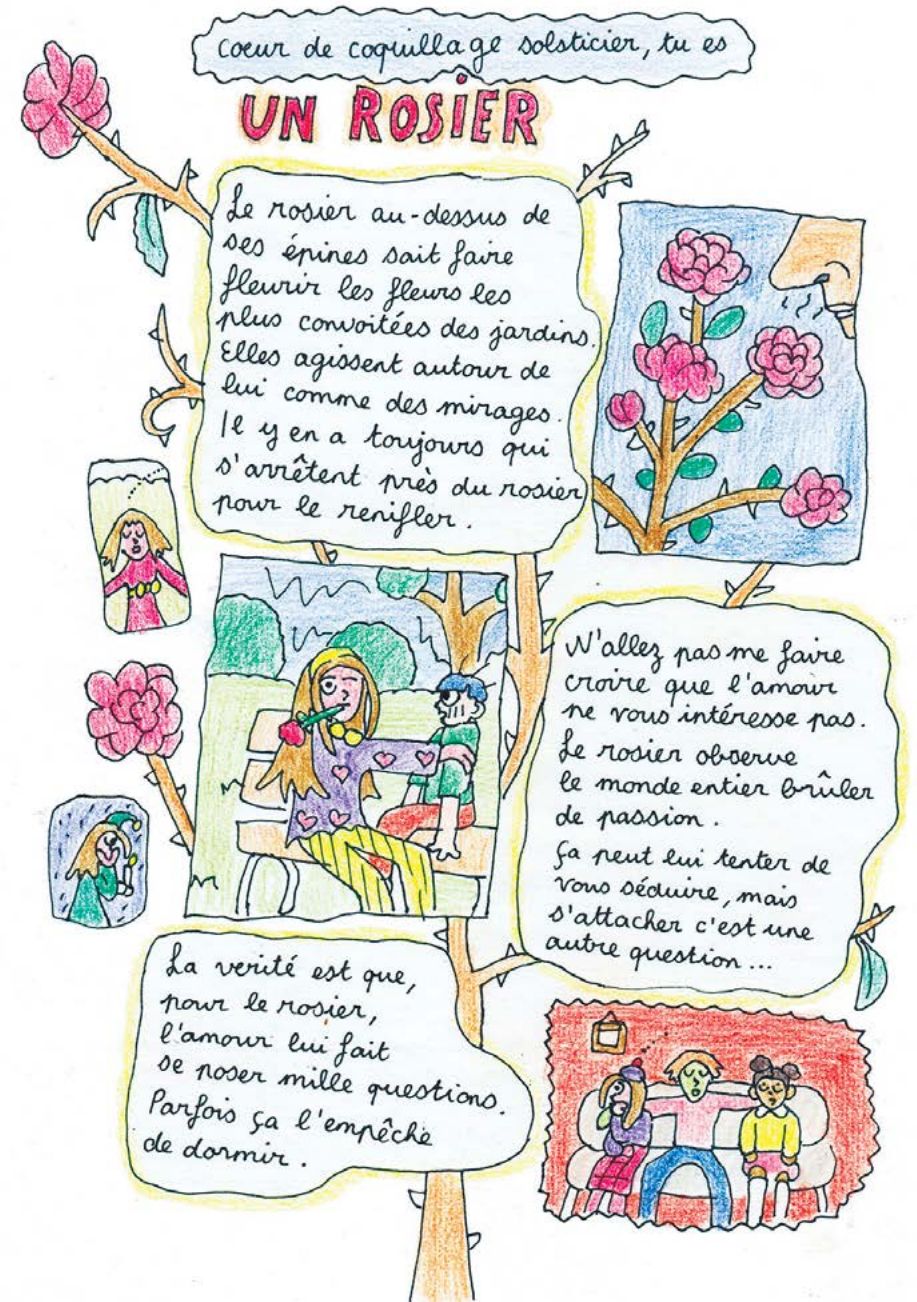 coeur de coquillage solsticier, tu es
UN ROSIER
Le rosier au-dessus de
ses épines sait faire
fleurir les fleurs les
plus convoitées des jardins.
Elles agissent autour de
lui comme des mirages.
Il y en a toujours qui
s'arrêtent près du rosier
pour le renifler.
N'allez pas me faire
croire que l'amour
ne vous intéresse pas.
Le rosier observe
le monde entier brûler
de passion.
Ça peut lui tenter de
vous séduire, mais
s'attacher c'est une
autre question...
La verité est que,
pour le rosier,
l'amour lui fait
se poser mille questions.
Parfois ça l'empêche
de dormir.